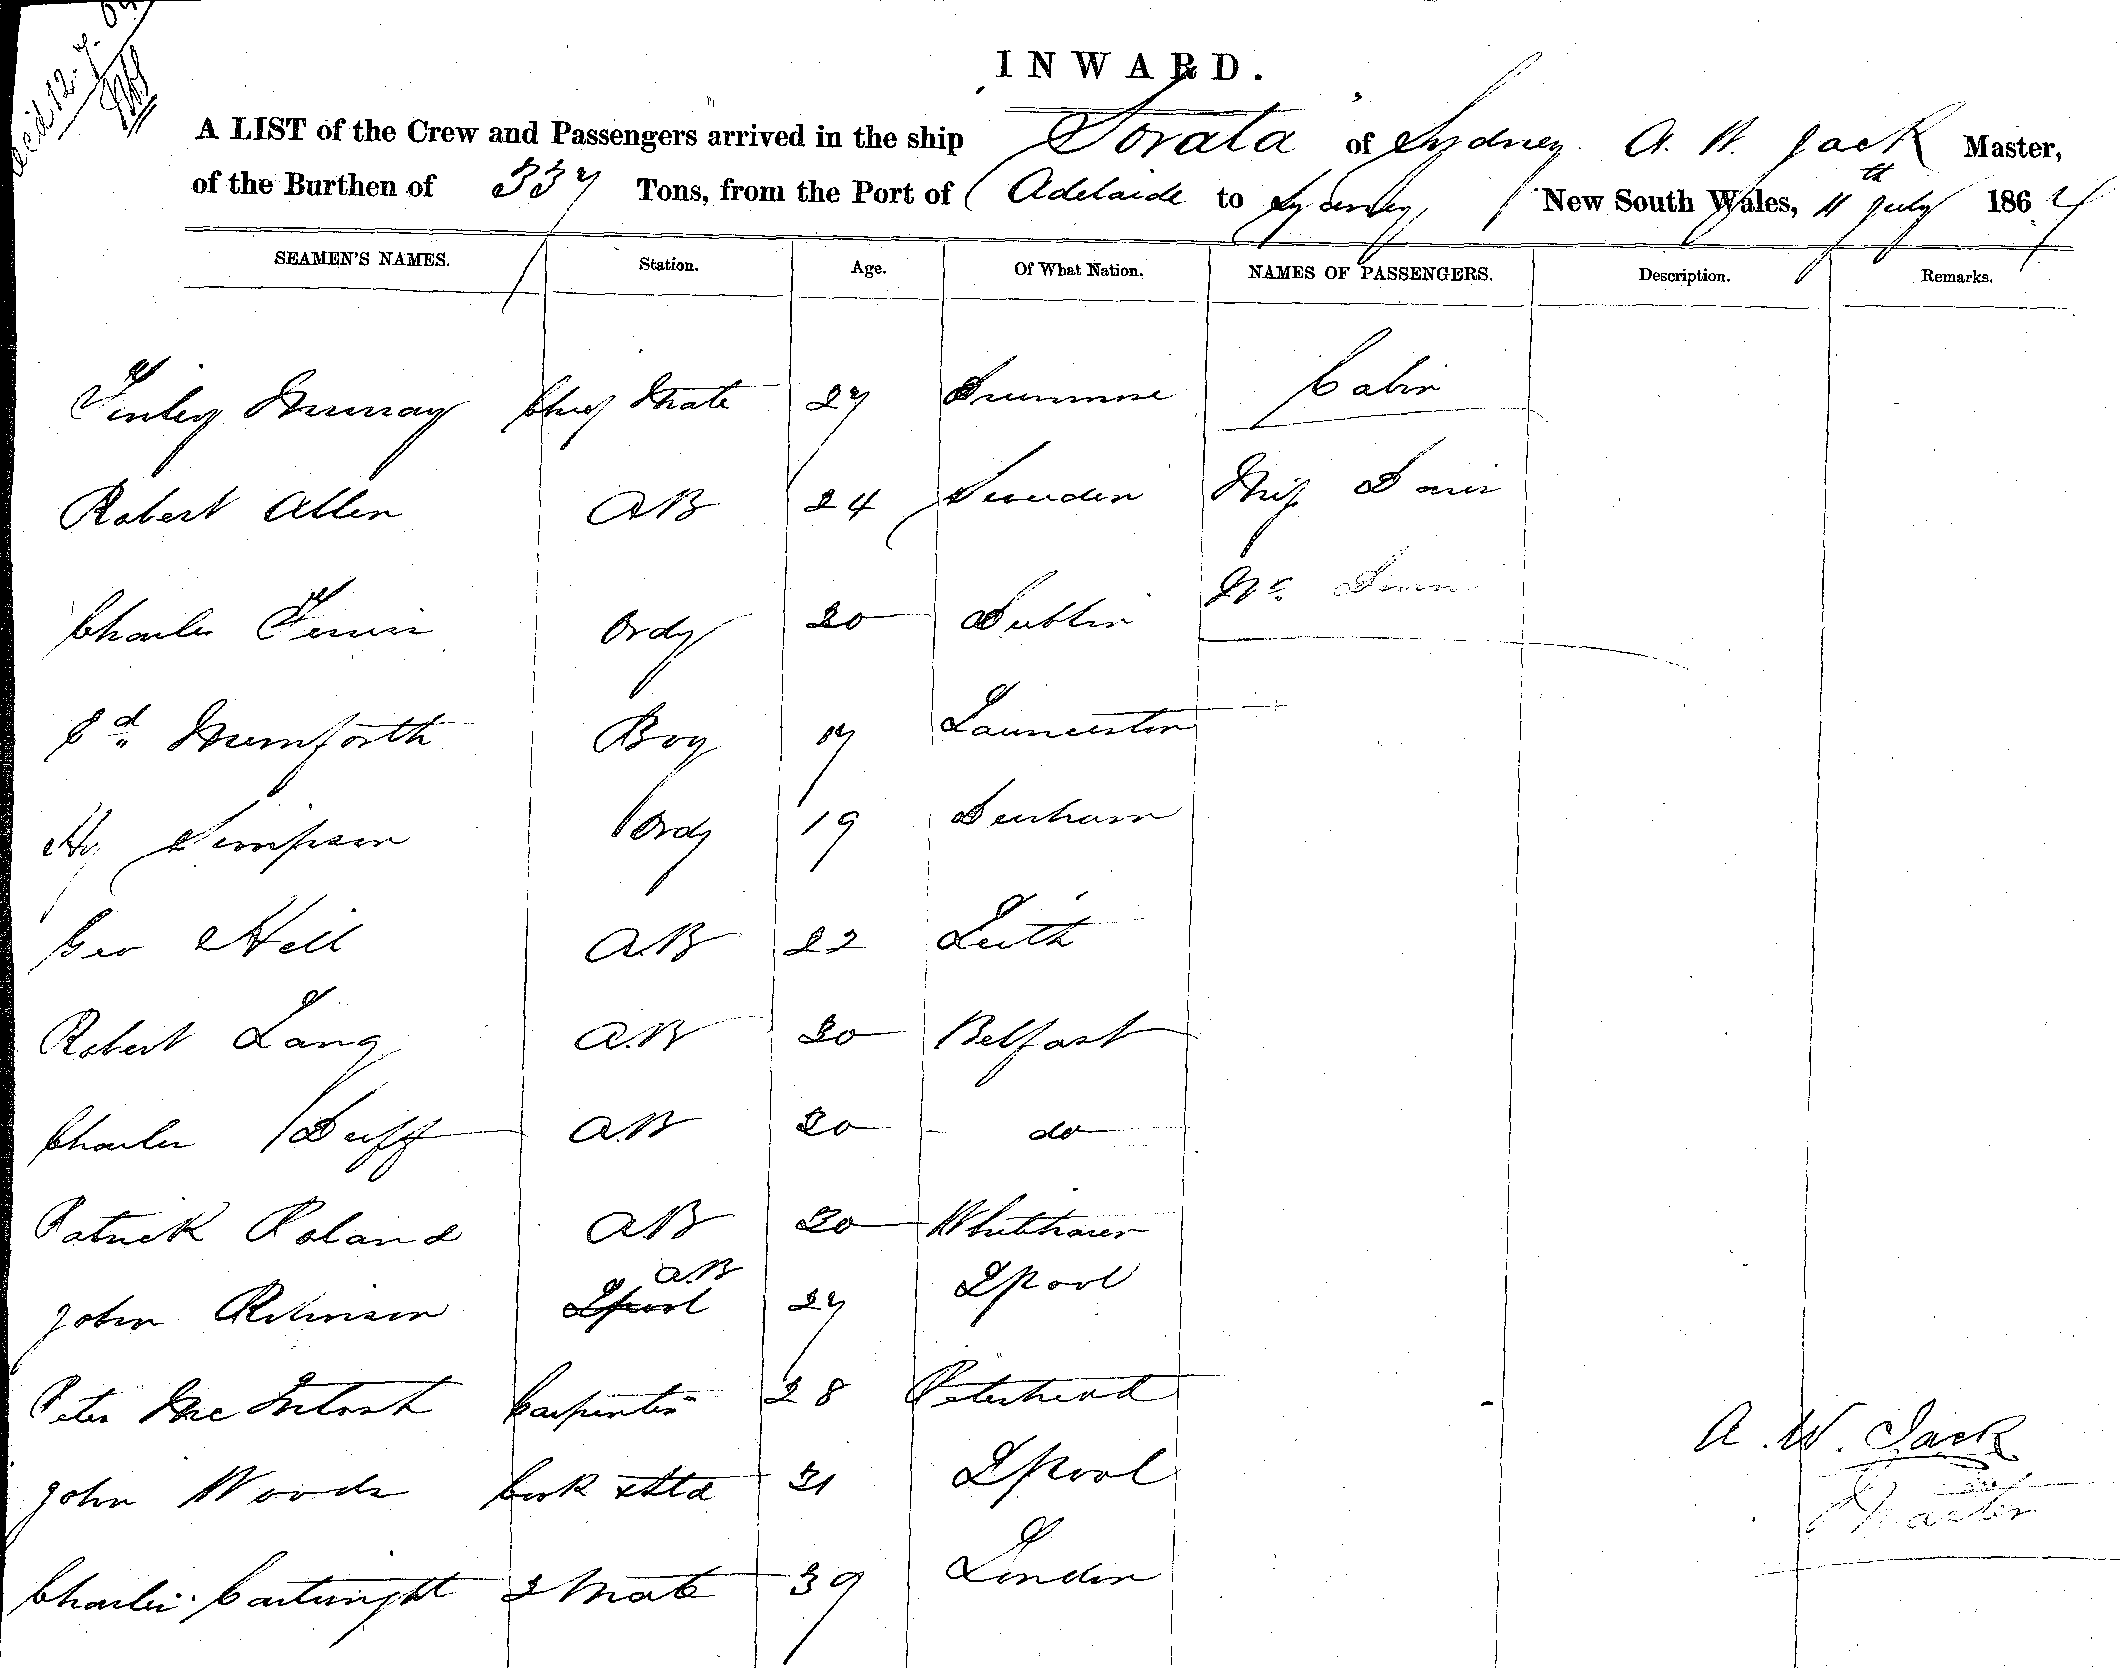 INWARD.
A LIST of the Crew and Passengers arrived in the ship Sorata of Sydney A. W. Jack Master,
of the Burthen of 337 Tons, from the Port of Adelaide to Sydney, New South Wales, 11th July 1864
SEAMEN'S NAMES. Station. Age. Of What Nation. NAMES OF PASSENGERS. Description. Remarks.
Finley Murray Chief Mate 27 Cabin
Robert Allen AB 24 Sweeden Miss
Charles Ordy 20 Dublin Mr
Ed Mumforth Boy 17 Launceston
Hy Simpson Ordy 19 Durham
Geo Hill AB 22 Leith
Robert Lang AB 30 Belfast
Charles Duff AB 30 do
Patrick Roland AB 30 Whithaven
John Robinson Lpool AB 27 Lpool
Peter McIntosh Carpenter 28 Peterhead
A. W. Jack
John Woods Cook & Std 31 Lpool
Master
Charles Cartwright 2 Mate 39 London